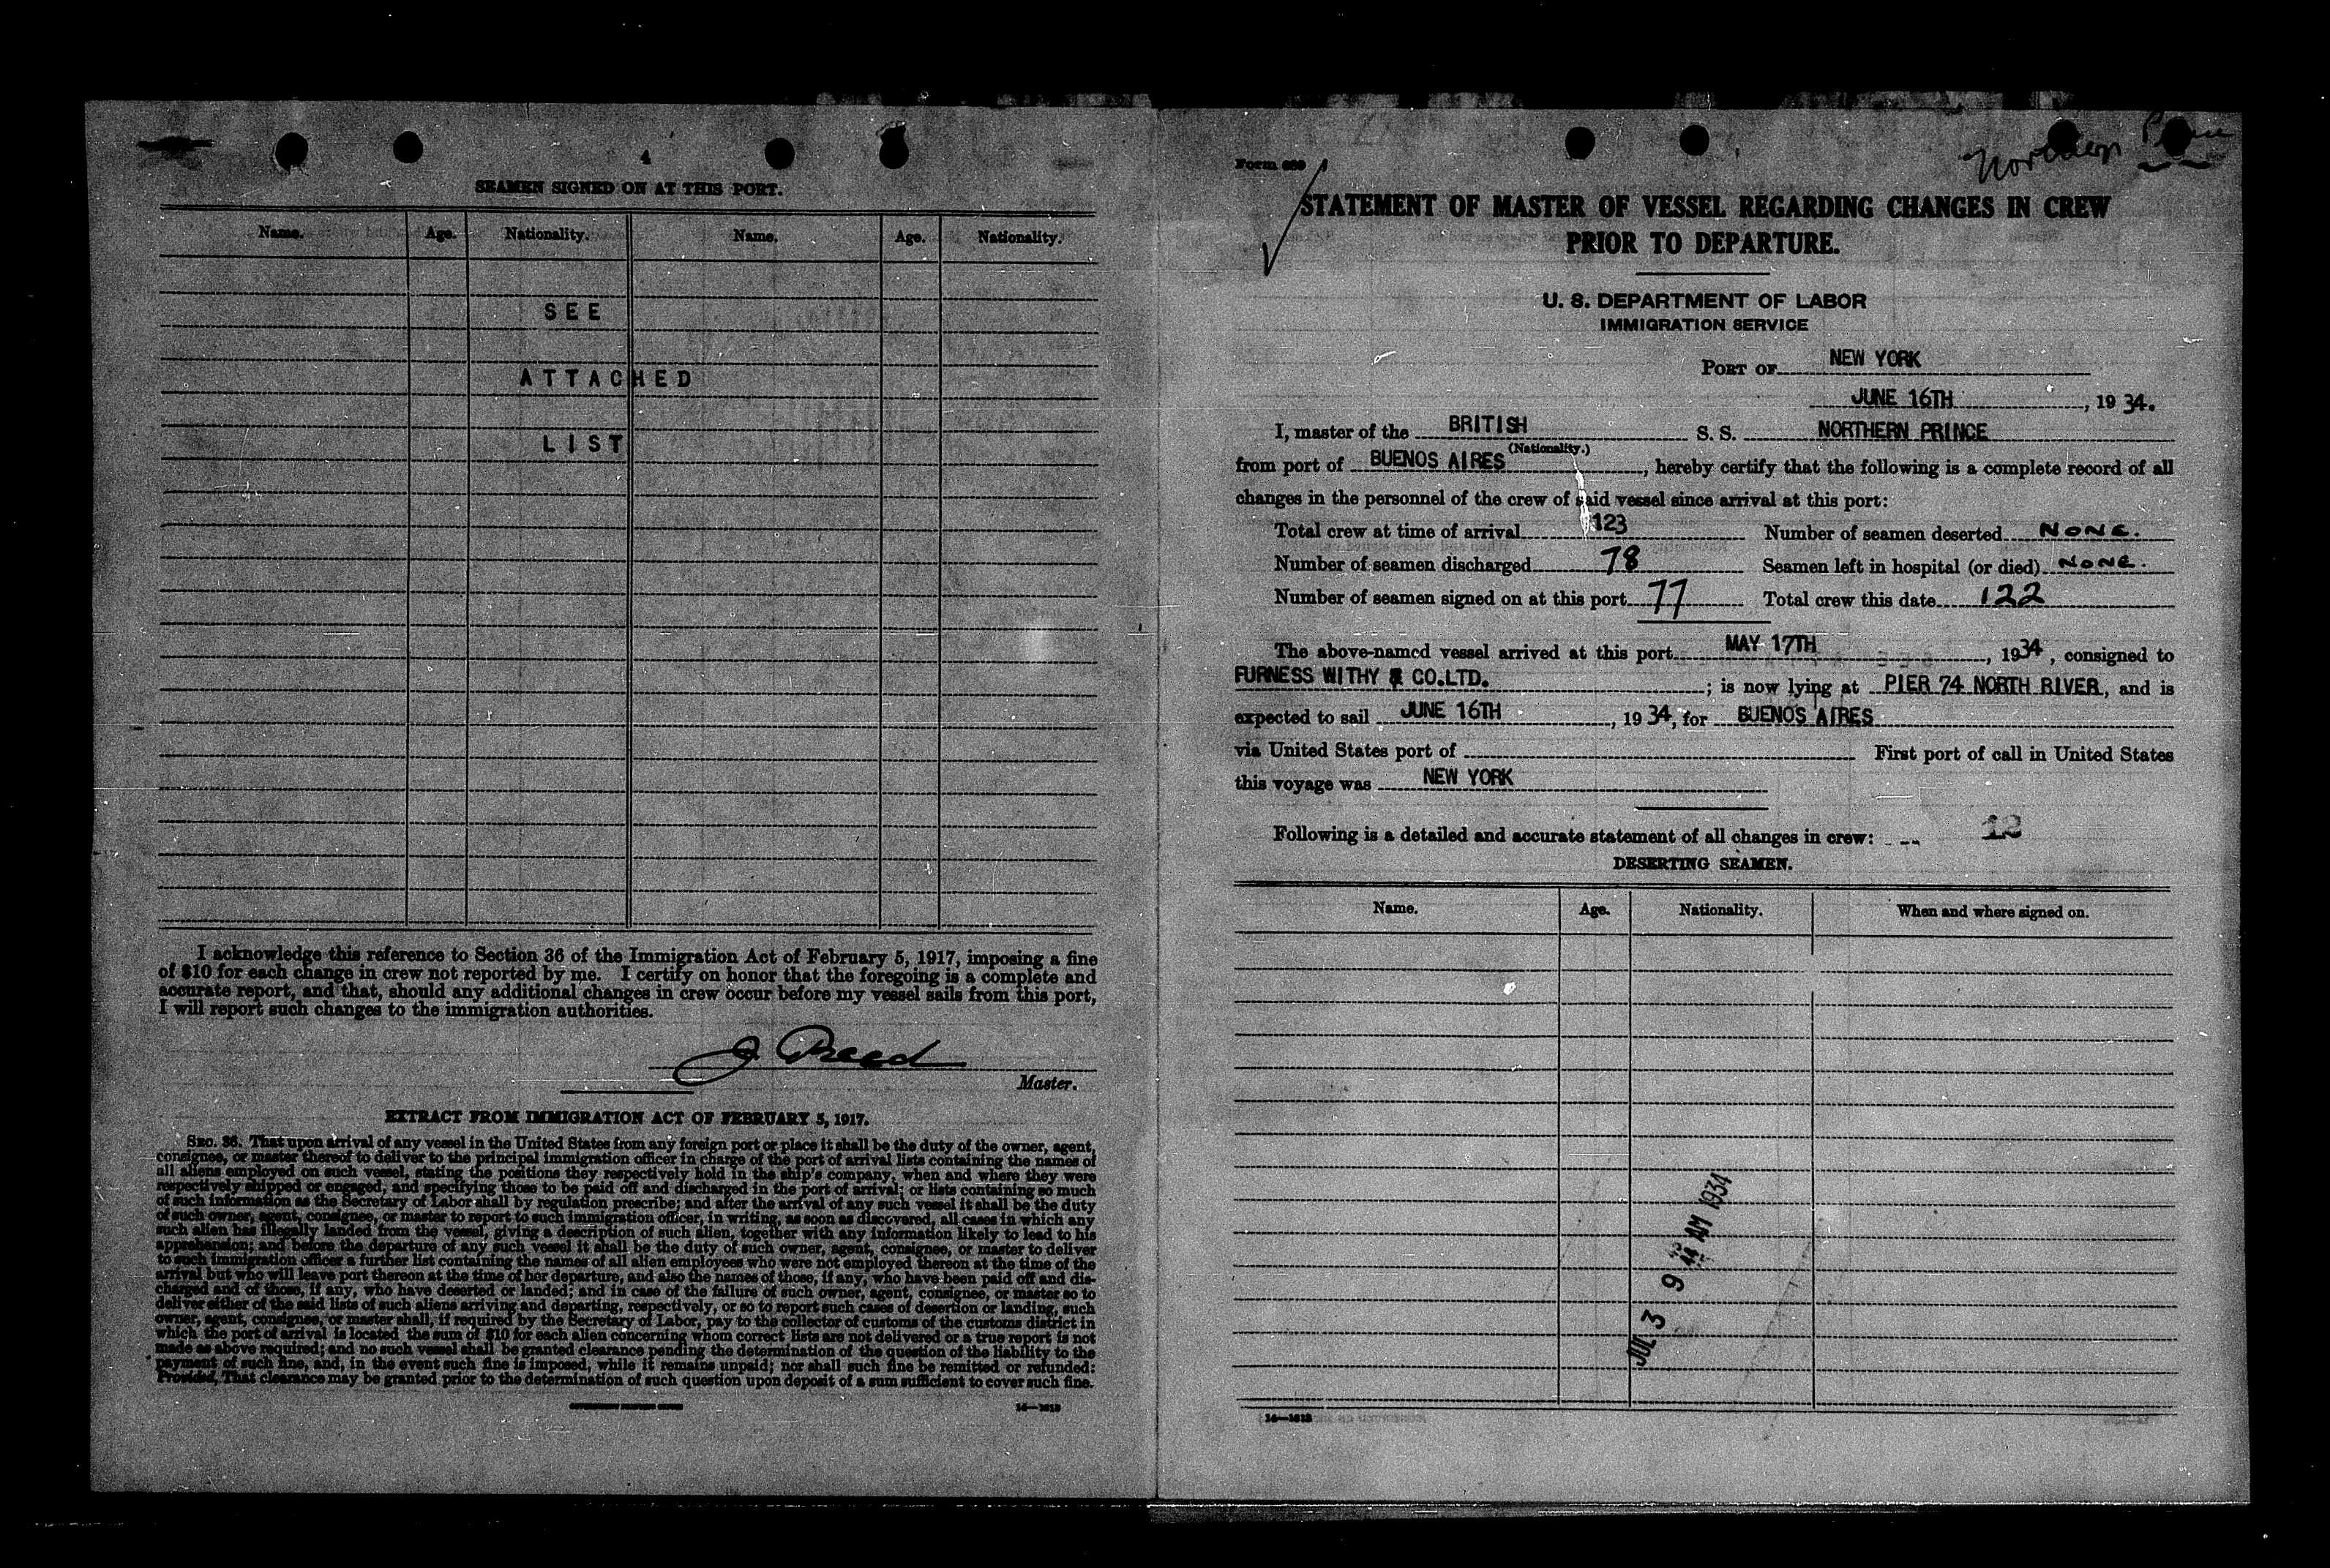 4
SEAMEN SIGNED ON AT THIS PORT.
Name. Age. Nationality. Name. Age. Nationality.
SEE
ATTACHED
LIST
I acknowledge this reference to Section 36 of the Immigration Act of February 5, 1917, imposing a fine
of $10 for each change in crew not reported by me. I certify on honor that the foregoing is a complete and
accurate report, and that, should any additional changes in crew occur before my vessel sails from this port,
I will report such changes to the immigration authorities.
J Reed
Master.
EXTRACT FROM IMMIGRATION ACT OF FEBRUARY 5, 1917.
SEC. 36. That upon arrival of any vessel in the United States from any foreign port or place it shall be the duty of the owner, agent,
consignee, or master thereof to deliver to the principal immigration officer in charge of the port of arrival lists containing the names of
all aliens employed on such vessel, stating the positions they respectively hold in the ship's company, when and where they were
respectively shipped or engaged, and specifying those to be paid off and discharged in the port of arrival; or lists containing so much
of such information as the Secretary of Labor shall by regulation prescribe; and after the arrival of any such vessel it shall be the duty
of such owner, agent, consignee, or master to report to such immigration officer, in writing, as soon as discovered, all cases in which any
such alien has illegally landed from the vessel, giving a description of such alien, together with any information likely to lead to his
apprehension; and before the departure of any such vessel it shall be the duty of such owner, agent, consignee, or master to deliver
to such immigration officer a further list containing the names of all alien employees who were not employed thereon at the time of the
arrival but who will leave port thereon at the time of her departure, and also the names of those, if any, who have been paid off and dis-
charged and of those, if any, who have deserted or landed; and in case of the failure of such owner, agent, consignee, or master so to
deliver either of the said lists of such aliens arriving and departing, respectively, or so to report such cases of desertion or landing, such
owner, agent, consignee, or master shall, if required by the Secretary of Labor, pay to the collector of customs of the customs district in
which the port of arrival is located the sum of $10 for each alien concerning whom correct lists are not delivered or a true report is not
made as above required; and no such vessel shall be granted clearance pending the determination of the question of the liability to the
payment of such fine, and, in the event such fine is imposed, while it remains unpaid; nor shall such fine be remitted or refunded:
Provided, That clearance may be granted prior to the determination of such question upon deposit of a sum sufficient to cover such fine.
14—1613
Northern Prince
Form 689
STATEMENT OF MASTER OF VESSEL REGARDING CHANGES IN CREW
PRIOR TO DEPARTURE.
U. S. DEPARTMENT OF LABOR
IMMIGRATION SERVICE
PORT OF NEW YORK
JUNE 16TH, 1934.
I, master of the BRITISH S. S. NORTHERN PRINCE
(Nationality.)
from port of BUENOS AIRES, hereby certify that the following is a complete record of all
changes in the personnel of the crew of said vessel since arrival at this port:
Total crew at time of arrival 123 Number of seamen deserted NONE.
Number of seamen discharged 78 Seamen left in hospital (or died) NONE.
Number of seamen signed on at this port 77 Total crew this date 122
The above-named vessel arrived at this port MAY 17TH, 1934, consigned to
FURNESS WITHY & CO.LTD.; is now lying at PIER 74 NORTH RIVER, and is
expected to sail JUNE 16TH, 1934, for BUENOS AIRES
via United States port of First port of call in United States
this voyage was NEW YORK
Following is a detailed and accurate statement of all changes in crew: 12
DESERTING SEAMEN.
Name. Age. Nationality. When and where signed on.
JUL 3 9 44 AM 1934
14—1613